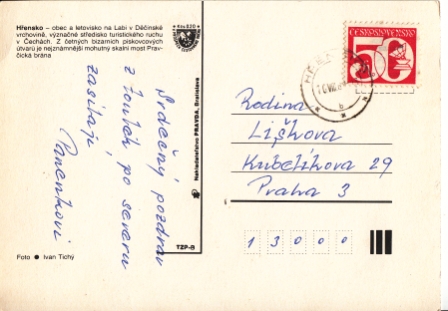 Hřensko – obec a letovisko na Labi v Děčínské
vrchovině, význačné středisko turistického ruchu
v Čechách. Z četných bizarních pískovcových
útvarů je nejznámnější mohutný skalní most Prav-
čická brána
Srdečný pozdrav
z toulek po severu
zasílají
Panenkovi
Foto ● Ivan Tichý
Nakladatelstvo PRAVDA, Bratislava
TZP-B
ČESKOSLOVENSKO
50
Rodina
Liškova
Kubelíkova 29
Praha 3
1 3 0 0 0